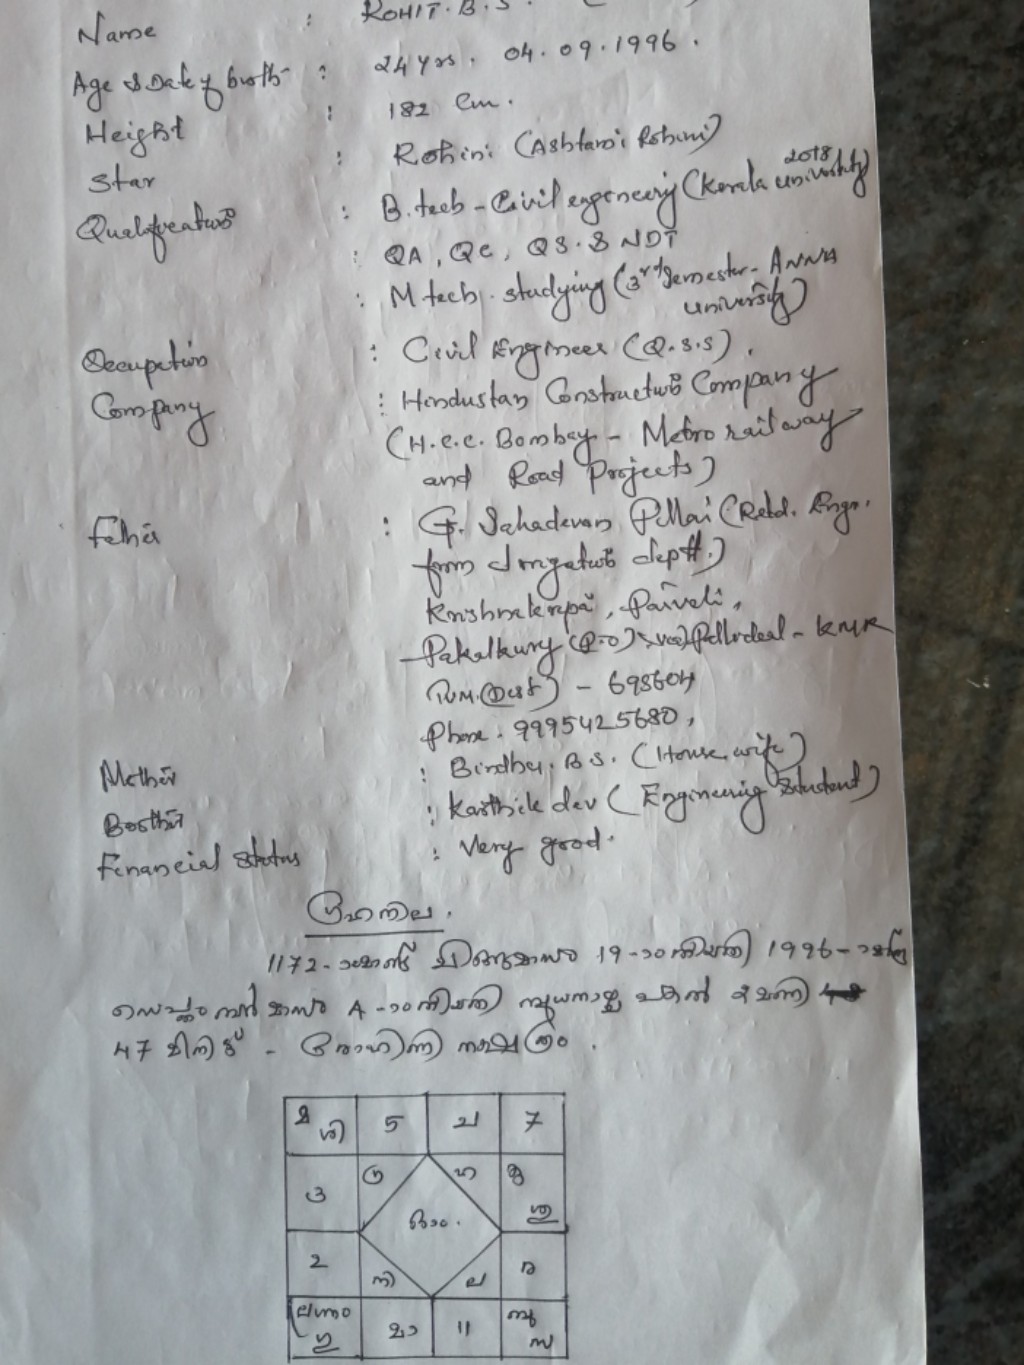 Name : ROHIT. B. S.
Age & Date of birth : 24 yrs. 04.09.1996.
Height : 182 cm.
Star : Rohini (Ashtami Rohini)
Qualification : B.tech - Civil engineering (Kerala university 2018)
: QA, QC, QS. & NDT
: M tech. studying (3rd semester - ANNA
university)
Occupation : Civil Engineer (Q.S.S).
Company : Hindustan Construction Company
(H.C.C. Bombay - Metro railway
and Road Projects)
Father : G. Sahadevan Pillai (Retd. Engr.
from Irrigation deptt.)
Krishnakripa, Paiveli,
Pakalkury (P.O) - KMR
TVM. (Dist) - 695604
Phone. 9995425680,
Mother : Bindhu. B.S. (House wife)
Brother : Karthik dev (Engineering Student)
Financial status : Very good.
ഗ്രഹനില.
1172-ാമാണ്ട് ചിങ്ങമാസം 19-ാം തിയതി 1996-
സെപ്തംബർ മാസം 4-ാം തിയതി ബുധനാഴ്ച പകൽ 2 മണി
47 മിനിട്ട് - രോഹിണി നക്ഷത്രം.
മ ശി 5 ച 7
3 ഗ്ര ഹ കു ശു
ഓം.
2 നി ല ര
ലഗ്നം ഗു മാ 11 ബു സ